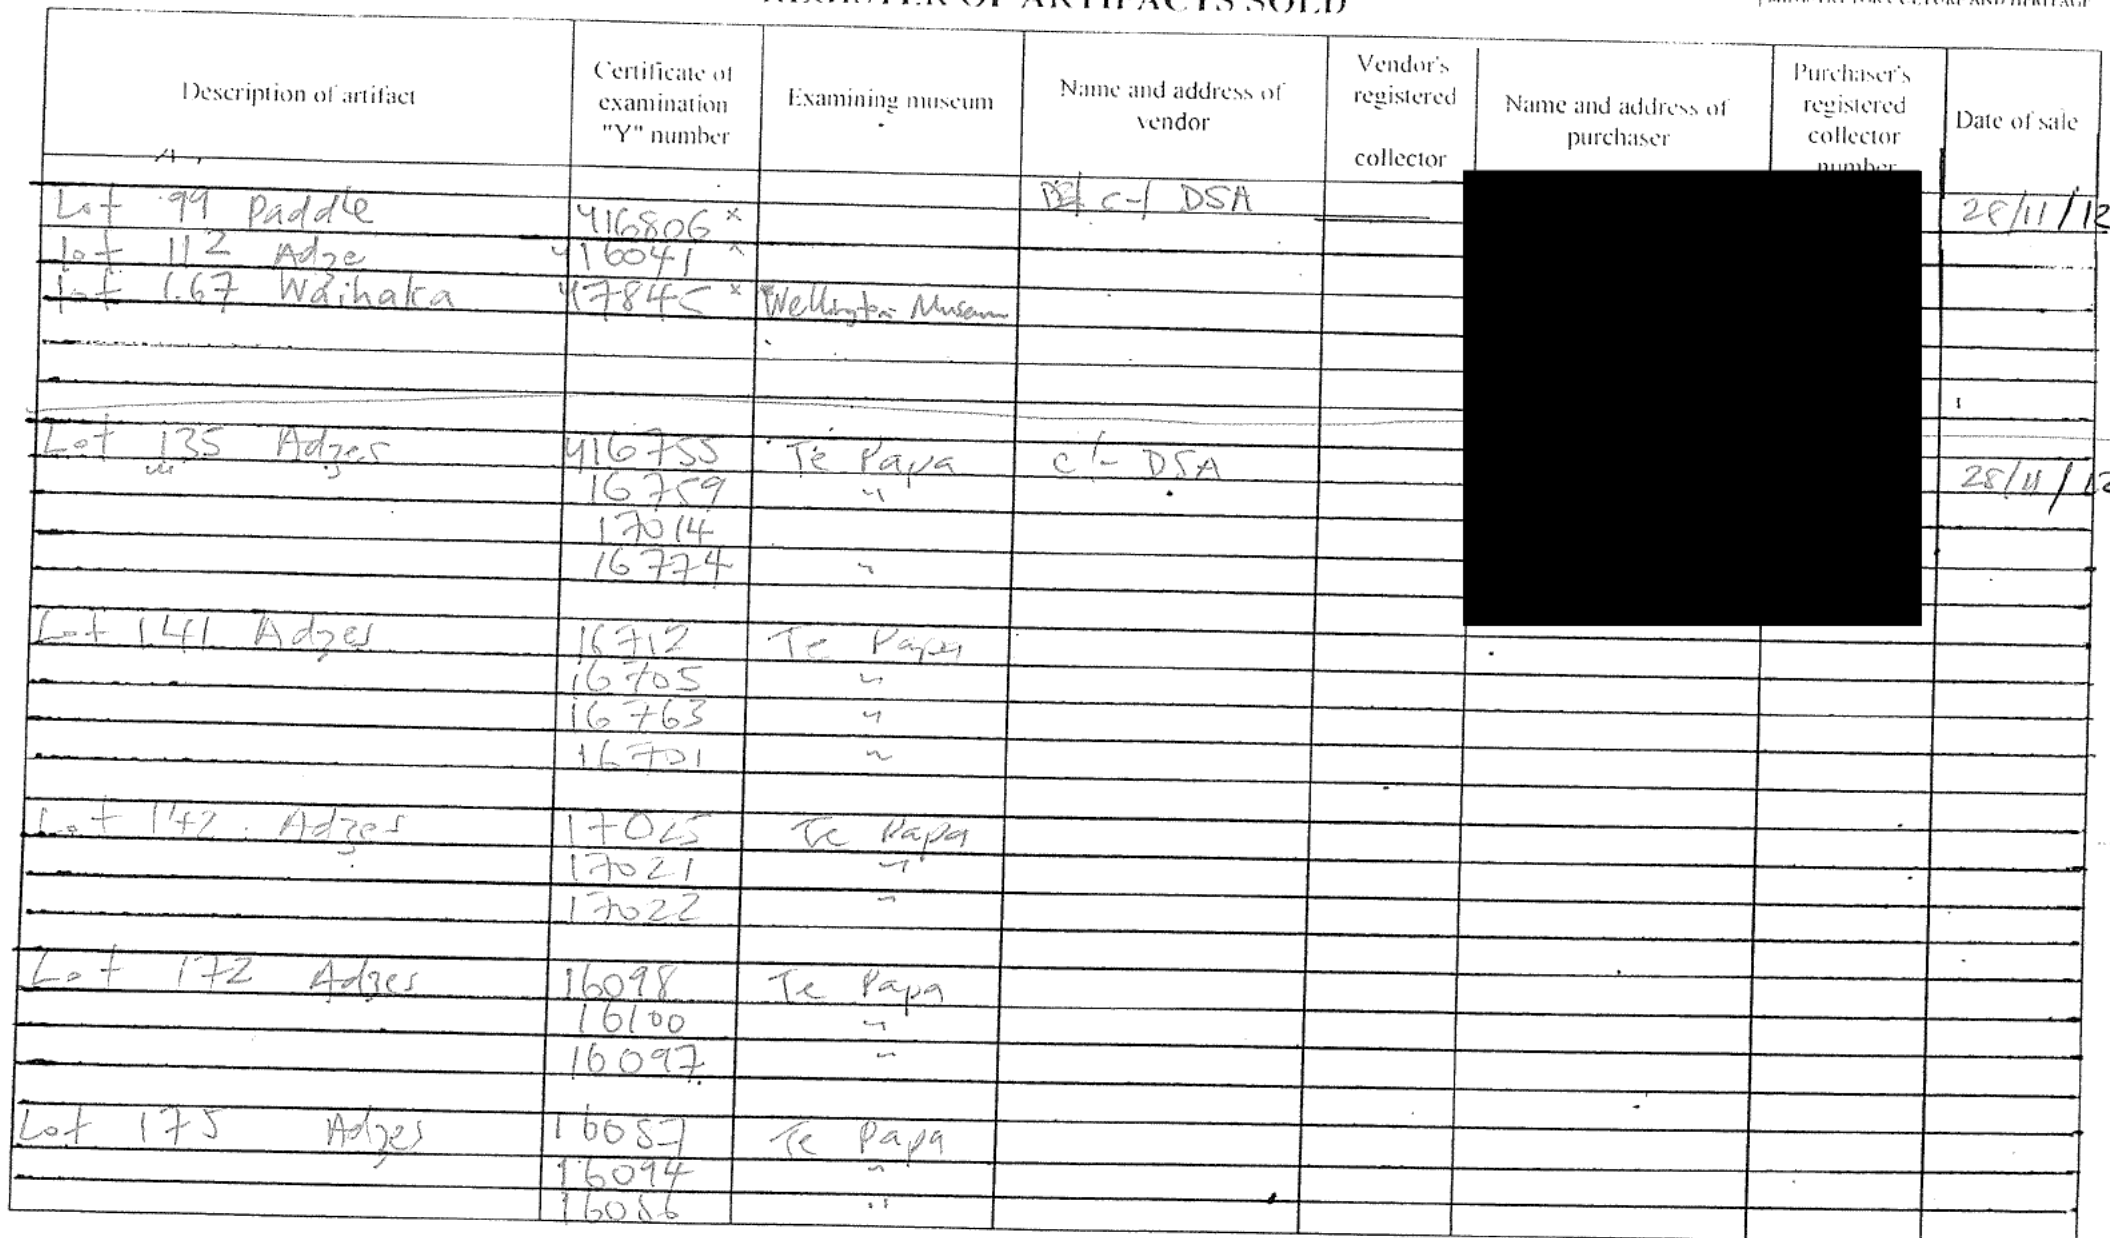 REGISTER OF ARTIFACTS SOLD
MINISTRY FOR CULTURE AND HERITAGE
Description of artifact
Certificate of examination "Y" number
Examining museum
Name and address of vendor
Vendor's registered collector
Name and address of purchaser
Purchaser's registered collector number
Date of sale
Lot 99 Paddle Y16806 x c-/ DSA 28/11/12
Lot 112 Adze Y16041
Lot 167 Waihaka Wellington Museum
Lot 135 Adzes Y16755 Te Papa c/- DSA 28/11/12
16759 "
17014
16774 "
Lot 141 Adzes 16712 Te Papa
16705 "
16763 "
16701 "
Lot 142 Adzes 17025 Te Papa
17021 "
17022 "
Lot 172 Adzes 16098 Te Papa
16100 "
16097 "
Lot 175 Adzes Te Papa
16094 "
"